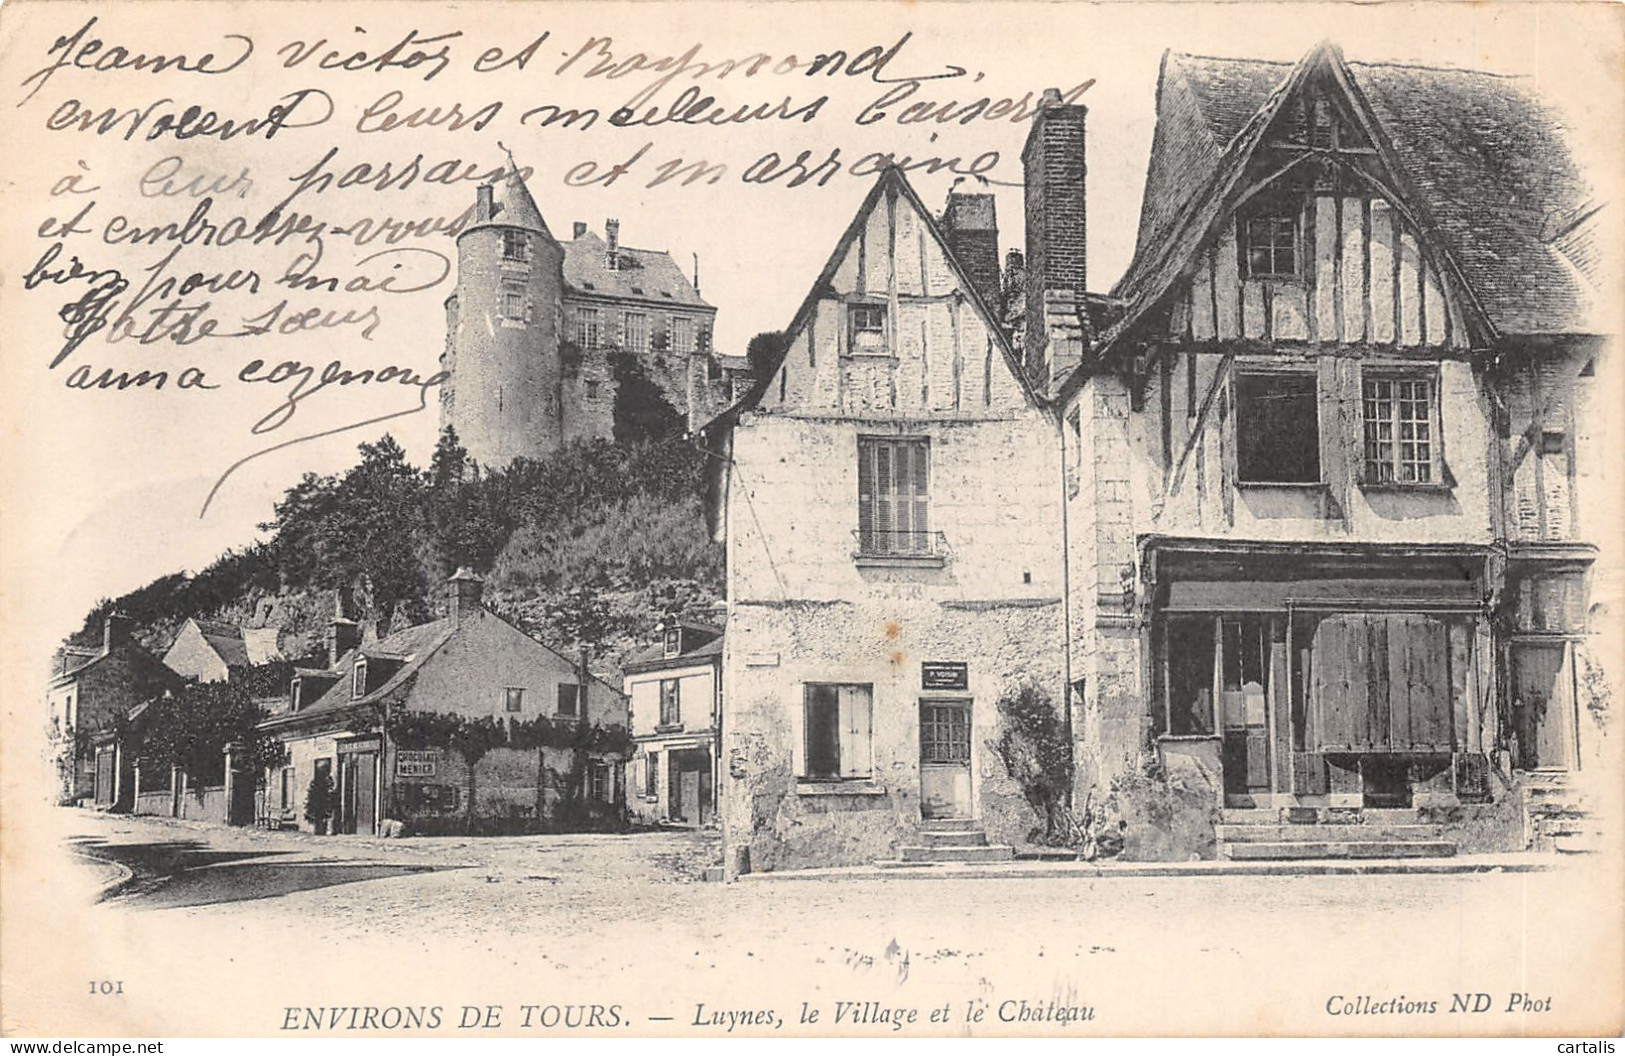 Jeanne Victor et Raymond
envoient leurs meilleurs baisers
à leur parrain et marraine
et embrassez-vous
bien pour mai
Votre sœur
anna
CHOCOLAT
MENIER
P. VOISIN
101
ENVIRONS DE TOURS. — Luynes, le Village et le Château
Collections ND Phot
cartalis